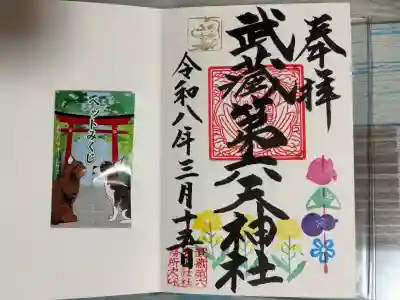 奉拝
武蔵第六天神社
令和八年三月十五日
ペットみくじ